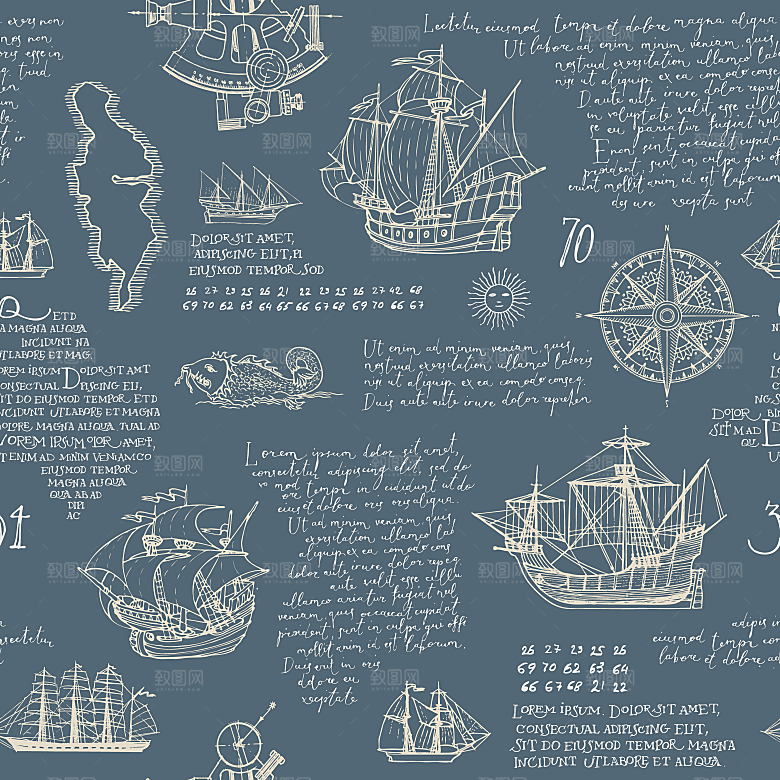 ex ors non
oris esse in
Lectetur eiusmod tempor et dolore magna aliqua
Ut labore ad enim minim veniam, quis
nostrud exersitation ullamco laboris
nisi ut aliquip ex ea comodo conse
Duis aute irure dolor reprehen
in voluptate velit esse cillu
se eu pariatur fugiat nul
E non sunt occaecat cupidat
proident, sunt in culpa qui
erunt mollit anim id est laborum
des ure xcepta sunt
DOLOR SIT AMET,
ADIPISCING ELIT, PI
EIUSMOD TEMPOR SOD
26 27 23 25 26 21 22 23 25 26 27 42 68
69 70 62 63 64 65 66 67 68 69 70 66 67
70
Q ETD
A MAGNA ALIQUA
INCIDUNT NA
UTLABORE ET MAG.
CONSECTUAL DIPISCING ELI,
SIT DO EIUSMOD TEMPOR ETD
INCIDUNT UTLABORE ET MAGNA
DOLORE MAGNA ALIQUA TUAL AD
LOREM IPSUM OLOR AMET,
ETENIM AD MINIM VENIAMCO
EIUSMOD TEMPOR
MAGNA ALIQUA
QUA AB AD
DIPI
AC
Ut enim ad minim veniam, quis
nostrud exersitation ullamco laboris
nisi ut aliquip ex ea comodo conseq.
Duis aute aute irure dolor reprehen
DOLOR
SIT M AD L
QU
Lorem ipsum dolor sit amet,
consectetur adipiscing elit, sed do
mod tempor in cididunt ut do
eius et dolore oris oris aliqua.
Ut ad minim veniam, quis
exersitation ullamco lab
aliquip ex ea comodo cons
aute irure dolor repeg
aute velit esse cillu
ullamco ariatur fugiat nul
veniam, quis occaecat cupidat
proident, sunt in culpa qui offi
mollit anim id est laborum.
Duis eut in oris
ddolore eu
xcepte
01
3
onsectetur
26 27 23 25 26
69 70 62 63 64
66 67 68 21 22
LOREM IPSUM. DOLOR SIT AMET,
CONSECTUAL ADIPISCING ELIT,
SIT DO EIUSMOD TEMPOR INCIDUNT
INCIDUNT UTLABORE ET ALIQUA.
adipis in
eiusmod tempor con
labore et dolore a
致图网